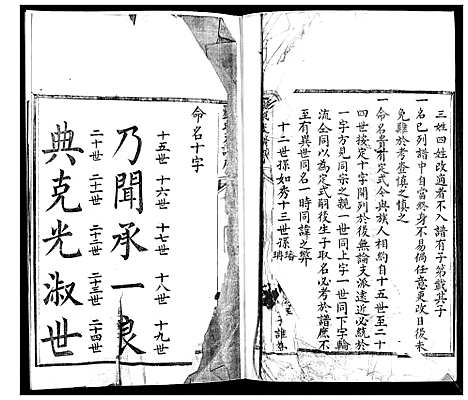 三姓四姓改適者不入譜有子第載其子
一名已列譜中自當終身不易倘任意更改日後未
免難於考登慎之慎之
一命名貴有定式今與族人相約自十五世至二十
四世接定十字開列於後無論支派遠近必統於
一字方見同宗之親一世同上字一世同下字輪
流仝同以為定式嗣後生子取名必考於譜庶不
至有異世同名一時同諱之弊
十二世孫如秀十三世孫
命名十字
十五世 十六世 十七世 十八世 十九世
乃聞承一良
二十世 二十一世 二十二世 二十三世 二十四世
典克光淑世